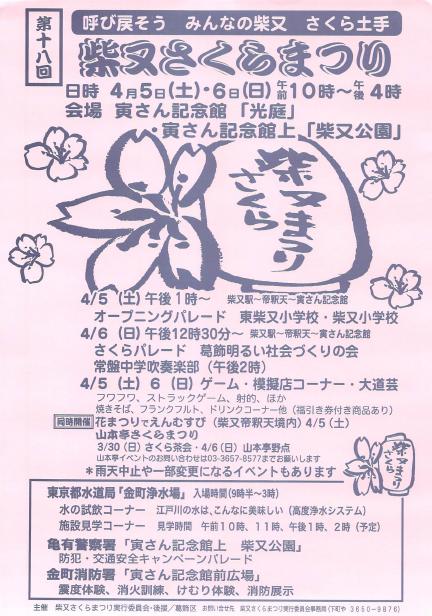 第十八回
呼び戻そう みんなの柴又 さくら土手
柴又さくらまつり
日時 4月5日(土)・6日(日)午前10時～午後4時
会場 寅さん記念館「光庭」
・寅さん記念館上「柴又公園」
柴又まつり
さくら
4/5(土)午後1時～ 柴又駅～帝釈天～寅さん記念館
オープニングパレード 東柴又小学校・柴又小学校
4/6(日)午後12時30分～ 柴又駅～帝釈天～寅さん記念館
さくらパレード 葛飾明るい社会づくりの会
常盤中学吹奏楽部(午後2時)
4/5(土)6(日)ゲーム・模擬店コーナー・大道芸
フワフワ、ストラックゲーム、射的、ほか
焼きそば、フランクフルト、ドリンクコーナー他(福引き券付き商品あり)
同時開催 花まつりでえんむすび(柴又帝釈天境内)4/5(土)
山本亭さくらまつり
3/30(日)さくら茶会・4/6(日)山本亭野点
山本亭イベントのお問い合わせは03-3657-8577までお願いします
*雨天中止や一部変更になるイベントもあります
柴又まつり
さくら
東京都水道局「金町浄水場」 入場時間(9時半～3時)
水の試飲コーナー 江戸川の水は、こんなに美味しい(高度浄水システム)
施設見学コーナー 見学時間 午前10時、11時、午後1時、2時(予定)
亀有警察署「寅さん記念館上 柴又公園」
防犯・交通安全キャンペーンパレード
金町消防署「寅さん記念館前広場」
震度体験、消火訓練、けむり体験、消防展示
主催 柴又さくらまつり実行委員会・後援/葛飾区 お問い合せ先 柴又さくらまつり実行委員会事務局(下町)3650-9876)